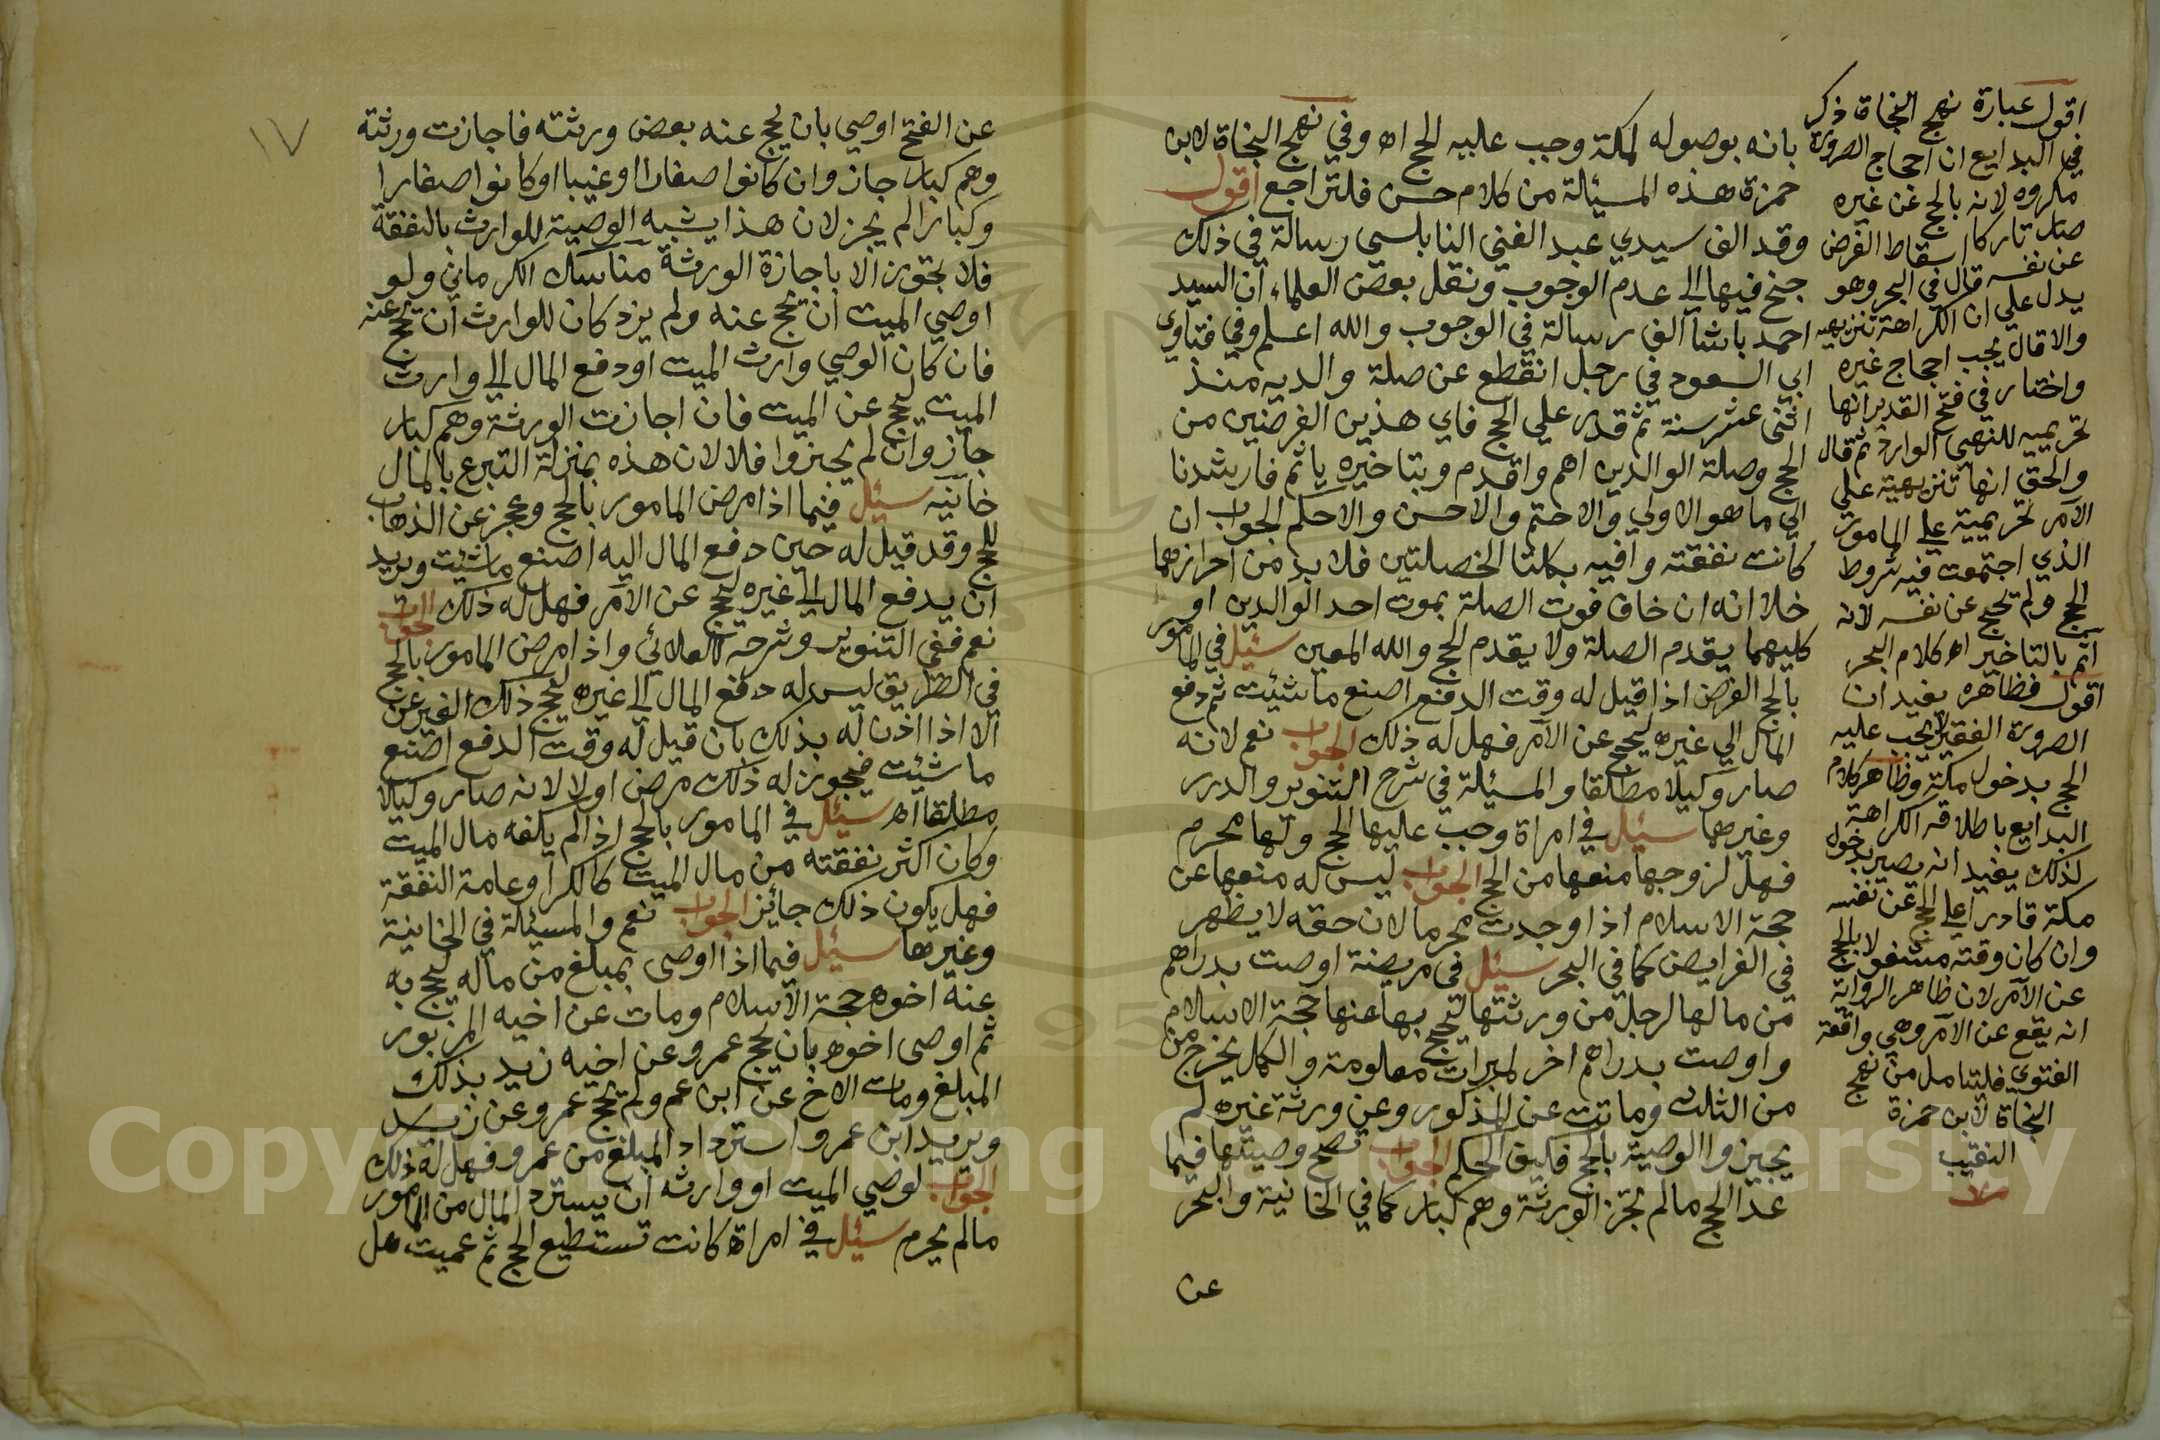 بانه بوصوله لمكة وجب عليه الحج اه وفي نهج النجاة لابن
حمزة هذه المسئلة من كلام حسن فلتراجع اقول
وقد الف سيدي عبد الغني النابلسي رسالة في ذلك
جنح فيها الى عدم الوجوب ونقل بعض العلماء ان السيد
احمد باشا الف رسالة في الوجوب والله اعلم وفي فتاوي
ابي السعود في رجل انقطع عن صلة والديه منذ
اثنى عشر سنة ثم قدر على الحج فاي هذين الفرضين من
الحج وصلة الوالدين اهم واقدم وبتاخيره ياثم فارشدنا
الي ما هو الاولي والاختم والاحسن والاحكم الجواب ان
كانت نفقته وافيه بكلتا الخصلتين فلا بد من احرازهما
خلا انه ان خاف فوت الصلة بموت احد الوالدين او
كليهما يقدم الصلة ولا يقدم الحج والله المعين سئل في المامور
بالحج الفرض اذا قيل له وقت الدفع اصنع ما شئت ثم دفع
المال الي غيره ليحج عن الآمر فهل له ذلك الجواب نعم لانه
صار وكيلا مطلقا والمسئلة في شرح التنوير والدرر
وغيرها سئل في امراة وجب عليها الحج ولها محرم
فهل لزوجها منعها من الحج الجواب ليس له منعها عن
حجة الاسلام اذا وجدت محرما لان حقه لا يظهر
في الفرايض كما في البحر سئل في مريضة اوصت بدراهم
من مالها لرجل من ورثتها لتحج بها عنها حجة الاسلام
واوصت بدراهم اخر لمبرات معلومة والكل يخرج من
من الثلث وماتت عن المذكور وعن ورثة غيره لم
يجيزوا الوصية بالحج فكيف الحكم الجواب تصح وصيتها فيما
عدا الحج مالم تجز الورثة وهم كبار كما في الخانية والبحر
عن
اقول عبارة نهج النجاة ذكر
في البدايع ان احجاج الصرورة
مكروه لانه بالحج عن غيره
صار تاركا اسقاط الفرض
عن نفسه قال في البحر وهو
يدل علي ان الكراهة تنزيهيه
والا قال يجب احجاج غيره
واختار في فتح القدير انها
تحريميه للنهي الوارد ثم قال
والحق انها تنزيهية علي
الآمر تحريمية علي المامور
الذي اجتمعت فيه شروط
الحج ولم تحج عن نفسه لانه
آثم بالتاخير اه كلام البحر
اقول فظاهره يفيد ان
الصرورة الفقير لا يجب عليه
الحج بدخول مكة وظاهر كلام
البدايع باطلاقه الكراهة
لذلك يفيد انه يصير بدخول
مكة قادرا علي الحج عن نفسه
وان كان وقته مشغولا بالحج
عن الآمر لان ظاهر الرواية
انه يقع عن الآمر وهي واقعة
الفتوي فليتامل من نهج
النجاة لابن حمزة
النقيب
١٧
عن الفتح اوصي بان يحج عنه بعض ورثته فاجازت ورثته
وهم كبار جاز وان كانوا صغارا او غيبا او كانوا صغارا
وكبارا لم يجز لان هذا يشبه الوصية للوارث بالنفقة
فلا تجوز الا باجازة الورثة مناسك الكرماني ولو
اوصي الميت ان تحج عنه ولم يزد كان للوارث ان تحج عنه
فان كان الوصي وارث الميت او دفع المال الي وارث
الميت ليحج عن الميت فان اجازت الورثة وهم كبار
جاز وان لم يجيزوا فلا لان هذه بمنزلة التبرع بالمال
خانيه سئل فيما اذا مرض المامور بالحج وعجز عن الذهاب
للحج وقد قيل له حين دفع المال اليه اصنع ما شئت ويريد
ان يدفع المال الي غيره ليحج عن الآمر فهل له ذلك الجواب
نعم ففي التنوير وشرحه للعلائي واذا مرض المامور بالحج
في الطريق ليس له دفع المال الي غيره ليحج ذلك الغير عن
الا اذا اذن له بذلك بان قيل له وقت الدفع اصنع
ما شئت فيجوز له ذلك مرض او لا لانه صار وكيلا
مطلقا اه سئل في المامور بالحج اذا لم يكفه مال الميت
وكان اكثر نفقته من مال الميت كالكرا وعامة النفقة
فهل يكون ذلك جائز الجواب نعم والمسئلة في الخانية
وغيرها سئل فيما اذا اوصى بمبلغ من ماله ليحج به
عنه اخوه حجة الاسلام ومات عن اخيه المزبور
ثم اوصى اخوه بان يحج عمرو عن اخيه زيد بذلك
المبلغ ومات الاخ عن ابن عم ولم يحج عمرو عن زيد
ويريد ابن عمرو استرداد المبلغ من عمرو فهل له ذلك
الجواب لوصي الميت او وارثه ان يسترد المال من المامور
مالم يحرم سئل في امراة كانت تستطيع الحج ثم عميت هل